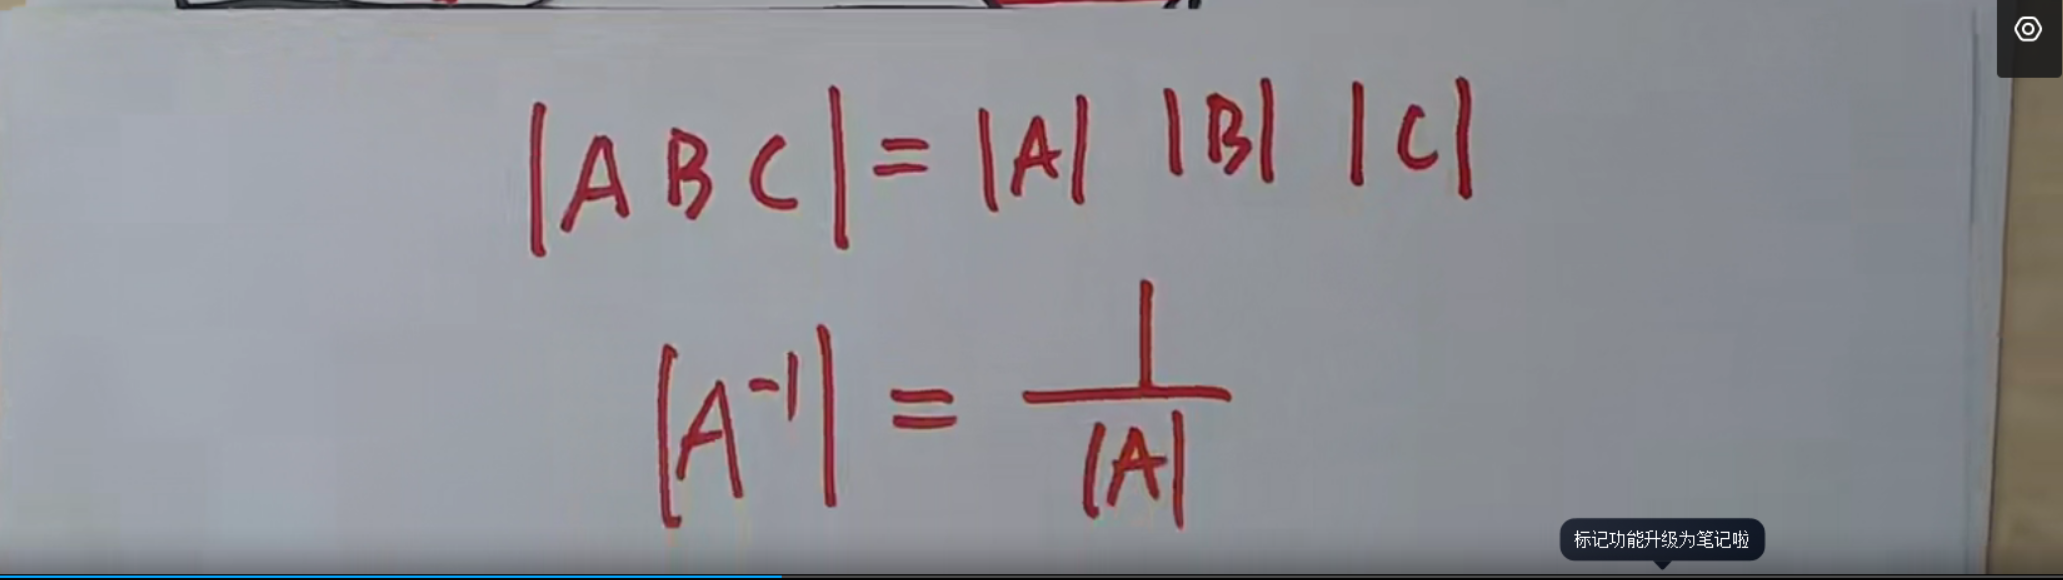 |ABC| = |A| |B| |C|
|A⁻¹| = 1/|A|
标记功能升级为笔记啦